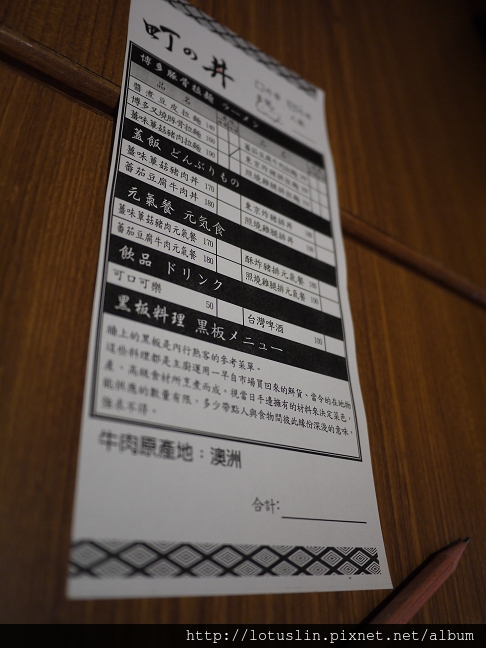 町の丼
博多豚骨拉麵 ラーメン
品 名
醬煮豆皮拉麵 140
博多叉燒豚骨拉麵
薑味蕈菇豬肉拉麵
東京炸豬排拉麵
照燒雞腿排拉麵
蓋飯 どんぶりもの
薑味蕈菇豬肉丼 170
番茄豆腐牛肉丼 180
東京炸豬排丼
照燒雞腿排丼
元氣餐 元気食
薑味蕈菇豬肉元氣餐 170
番茄豆腐牛肉元氣餐 180
酥炸豬排元氣餐
照燒雞腿排元氣餐
飲品 ドリンク
可口可樂 50
台灣啤酒 100
黑板料理 黒板メニュー
牆上的黑板是內行熟客的參考菜單。
這些料理都是主廚運用一早自市場買回來的鮮貨、當令的在地物
產、高級食材所烹煮而成。視當日手邊擁有的材料來決定菜色,
能供應的數量有限,多少帶點人與食物間彼此緣份深淺的意味。
強求不得。
牛肉原產地:澳洲
合計:
http://lotuslin.pixnet.net/album